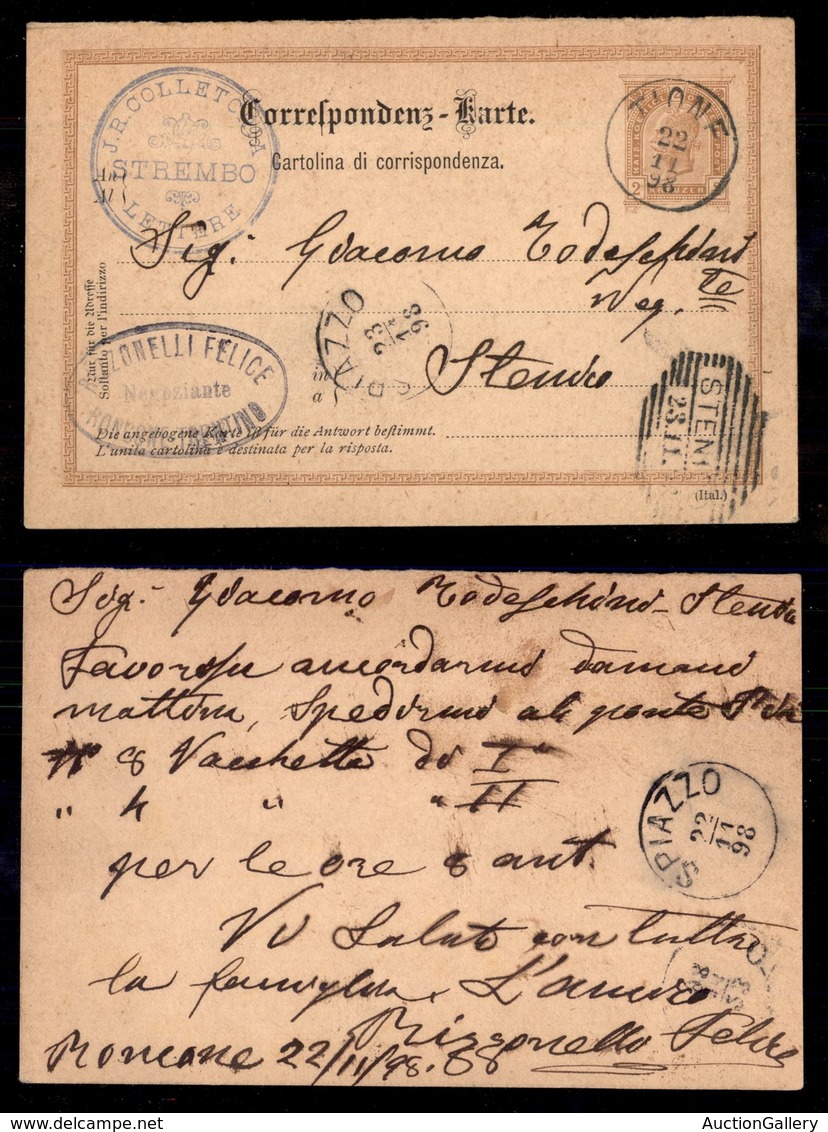 J. R. COLLETORIA
STREMBO
LETTERE
Correspondenz-Karte.
Cartolina di corrispondenza.
TIONE
22
11
98
2 KREUZER
An
Al
Sig: Giacomo Todeschini
Neg.te
Stenico
Nur für die Adresse
Soltanto per l'indirizzo
SPIAZZO
23
11
98
ZONELLI FELICE
Negoziante
in
a
STENI
23.11.
Die angebogene Karte ist für die Antwort bestimmt.
L'unita cartolina è destinata per la risposta.
(Ital.)
Sig. Giacomo Todeschini - Stenico
domani
mattina, al ponte
8 Vacchette di I
" 4 " " II
per le ore 8 ant.
SPIAZZO
22
11
98
Vi Saluto con tutta
la famiglia, L'amico
Felice
Roncone 22/11/98.
AuctionGallery